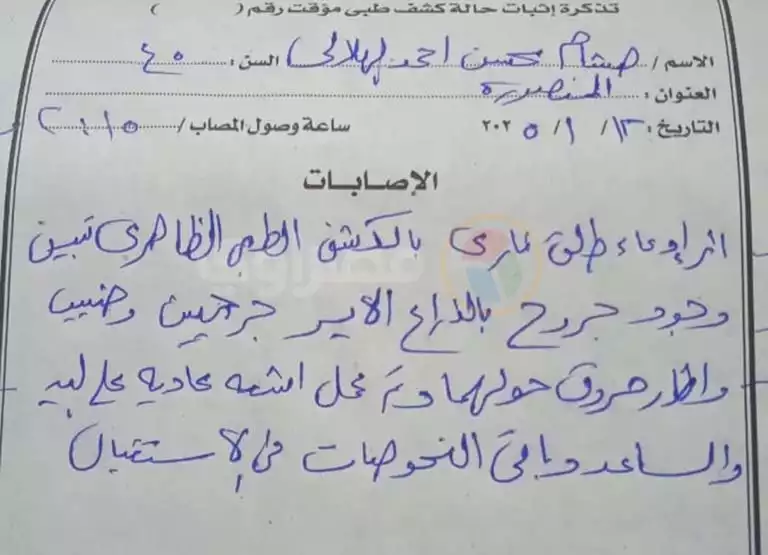 تذكرة إثبات حالة كشف طبى مؤقت رقم ( )
الاسم / هشام محسن احمد الهلالى السن : ٤٠
العنوان : المنصورة
التاريخ : ١٣ / ١ / ٢٠٢٥ ساعة وصول المصاب /
الإصابات
اثر إدعاء طلق نارى بالكشف الطبى الظاهرى تبين
وجود جروح بالذراع الايسر جرحين
واثار حروق حولهما وتم عمل اشعه عاديه على اليد
والساعد وباقى الفحوصات فى الاستقبال
مصراوي